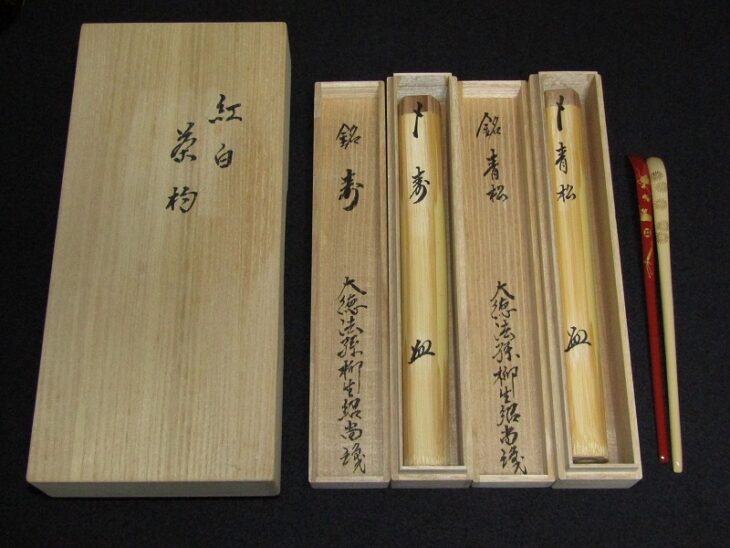 紅白
茶杓
銘 寿
大徳法孫柳生紹尚識
寿
銘 青松
大徳法孫柳生紹尚識
青松